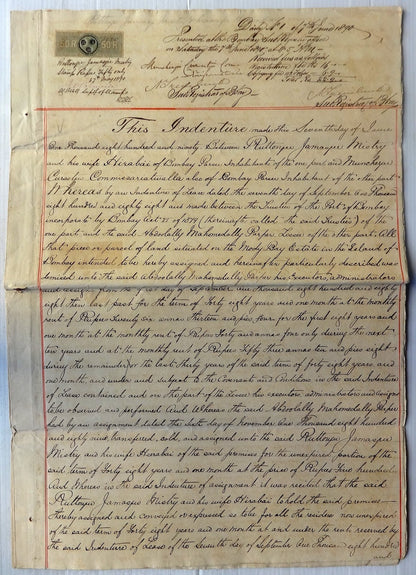 50 R
50 R
Daily No 1 of 7th June 1890
on Saturday the 7th June 1890
Muncherjee Cursetjee
Sub Registrar of Bombay
Sub Registrar
Ruttonjee Jamasjee Mistry
Stamp Rupees Fifty only
This Indenture made this Seventh day of June
One thousand eight hundred and ninety Between Ruttonjee Jamasjee Mistry
and his wife Hirabai of Bombay Parsi Inhabitants of the one part and Muncherjee
Cursetjee Commissariatwalla also of Bombay Parsi Inhabitant of the other part
Whereas by an Indenture of Lease dated the seventh day of September One Thousand
eight hundred and eighty eight and made between the Trustees of the Port of Bombay
incorporated by Bombay Act of 1879 (hereinafter called the said Trustees) of the
one part and the said Abdoolally Mahomedally Lessee of the other part All
that piece or parcel of land situated on the Mody Bay Estate in the Island of
Bombay intended to be hereby assigned and hereinafter particularly described was
demised unto the said Abdoolally Mahomedally his Executors, administrators
and assigns from the 1st day of September one thousand eight hundred and eighty
eight then last past for the term of Forty eight years and one month at the monthly
rent of Rupees Twenty six annas thirteen and pies four for the first eight years and
one month at the monthly rent of Rupees Forty and annas four only during the next
ten years and at the monthly rent of Rupees Fifty three annas ten and pies eight
during the remainder or the last thirty years of the said term of forty eight years and
one month, and under and subject to the Covenants and Conditions in the said Indenture
of Lease contained and on the part of the lessee his executors administrators and assigns
to be observed and performed And Whereas the said Abdoolally Mahomedally
had by an assignment dated the sixth day of November One Thousand eight hundred
and eighty nine, transferred, sold, and assigned unto the said Ruttonjee Jamasjee
Mistry and his wife Hirabai of the said premises for the unexpired portion of the
said term of Forty eight years and one month at the price of Rupees Five hundred
And Whereas in the said Indenture of assignment it was recited that the said
Ruttonjee Jamasjee Mistry and his wife Hirabai to hold the said premises
thereby assigned and conveyed or expressed so to be for all the residue now unexpired
of the said term of Forty eight years and one month at and under the rents reserved by
the said Indenture of Lease of the Seventh day of September One Thousand eight hundred
and